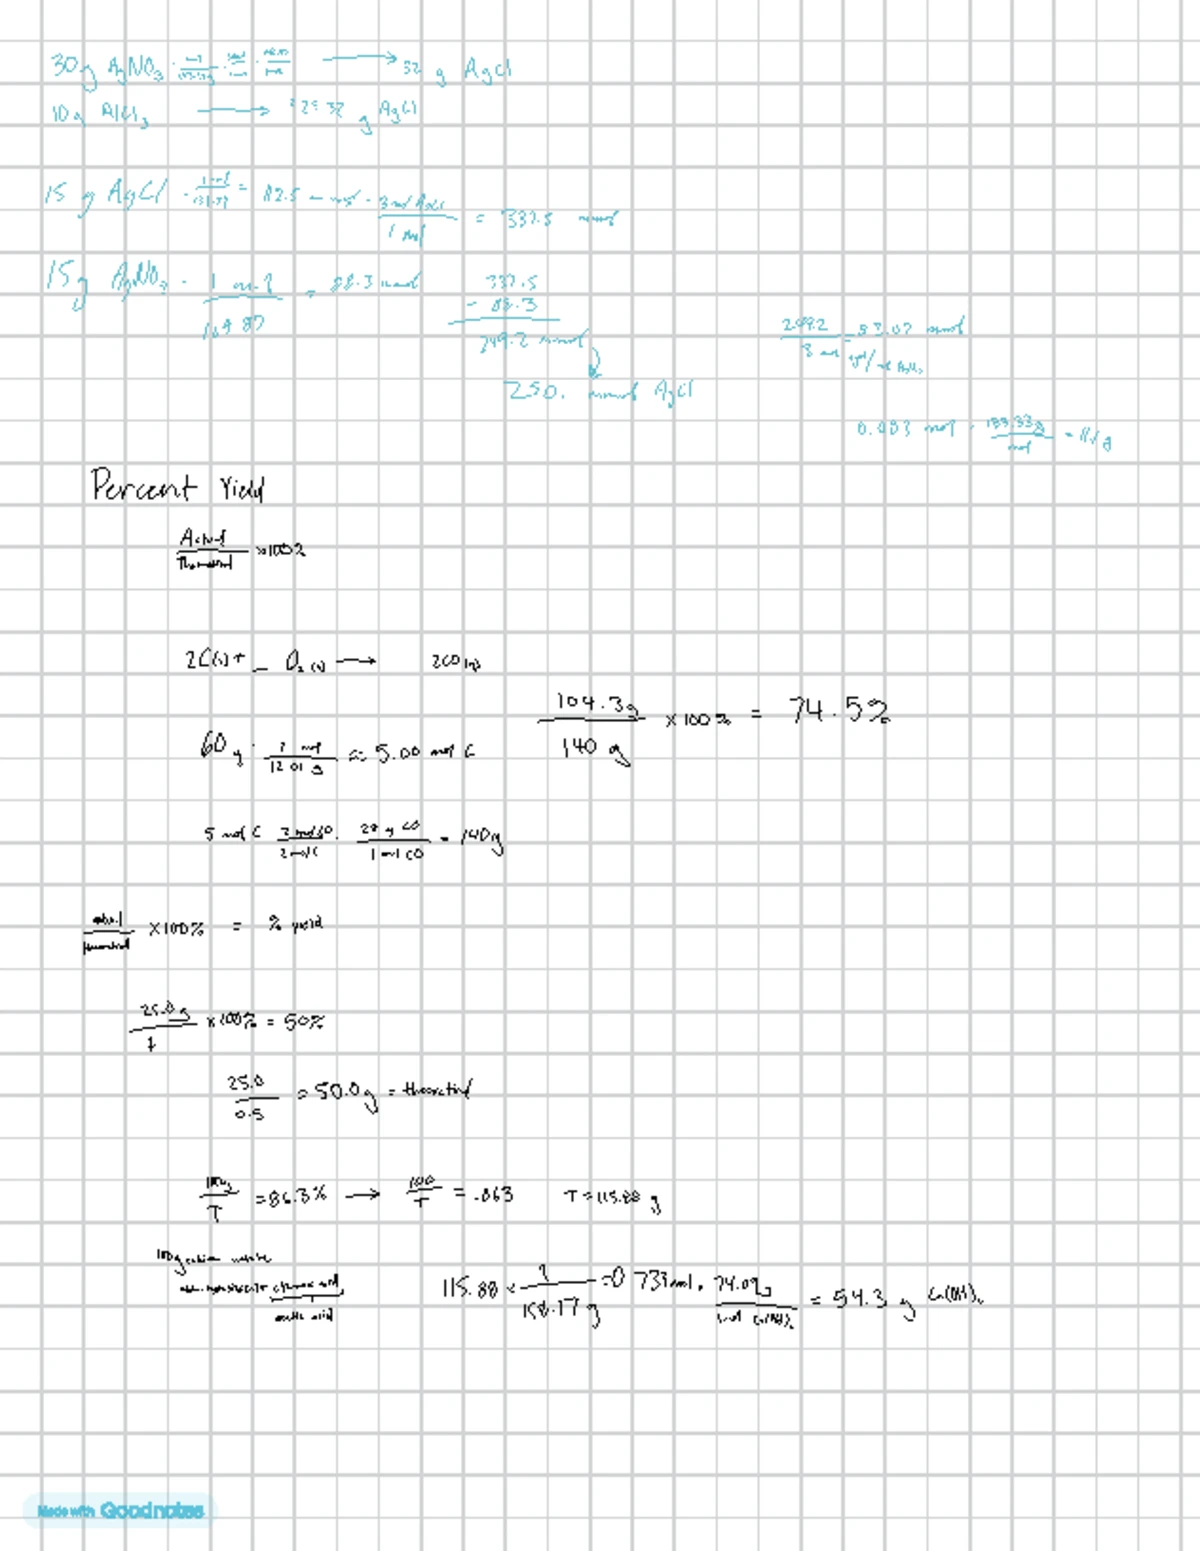 30g AgNO3 · → 32 g AgCl
10g AlCl3 → 32 g AgCl
15 g AgCl · 1 mol = 112.5 mmol · 3 mol AgCl / 1 mol = 337.5 mmol
15g AgNO3 · 1 mol / 169.87 = 88.3 mmol
337.5
- 88.3
249.2 mmol
250. mmol AgCl
249.2 / 3 mol = 83.07 mmol
0.083 mol · 133.33g / mol = 11.1 g
Percent Yield
Actual / Theoretical ×100%
2C(s) + _ O2 (g) → 2CO (g)
60 g · 1 mol / 12.01 g ≈ 5.00 mol C
104.3g / 140 g × 100% = 74.5%
5 mol C 2 mol CO / 2 mol C · 28 g CO / 1 mol CO = 140g
actual / theoretical ×100% = % yield
25.0 g / T ×100% = 50%
25.0 / 0.5 = 50.0g = theoretical
100g / T = 86.3% → 100 / T = .863 T = 115.88 g
100g calcium
acetic acid
115.88 · 1 / 158.17 g = 0.733 mol · 74.09g / mol Ca(OH)2 = 54.3 g Ca(OH)2
Made with Goodnotes